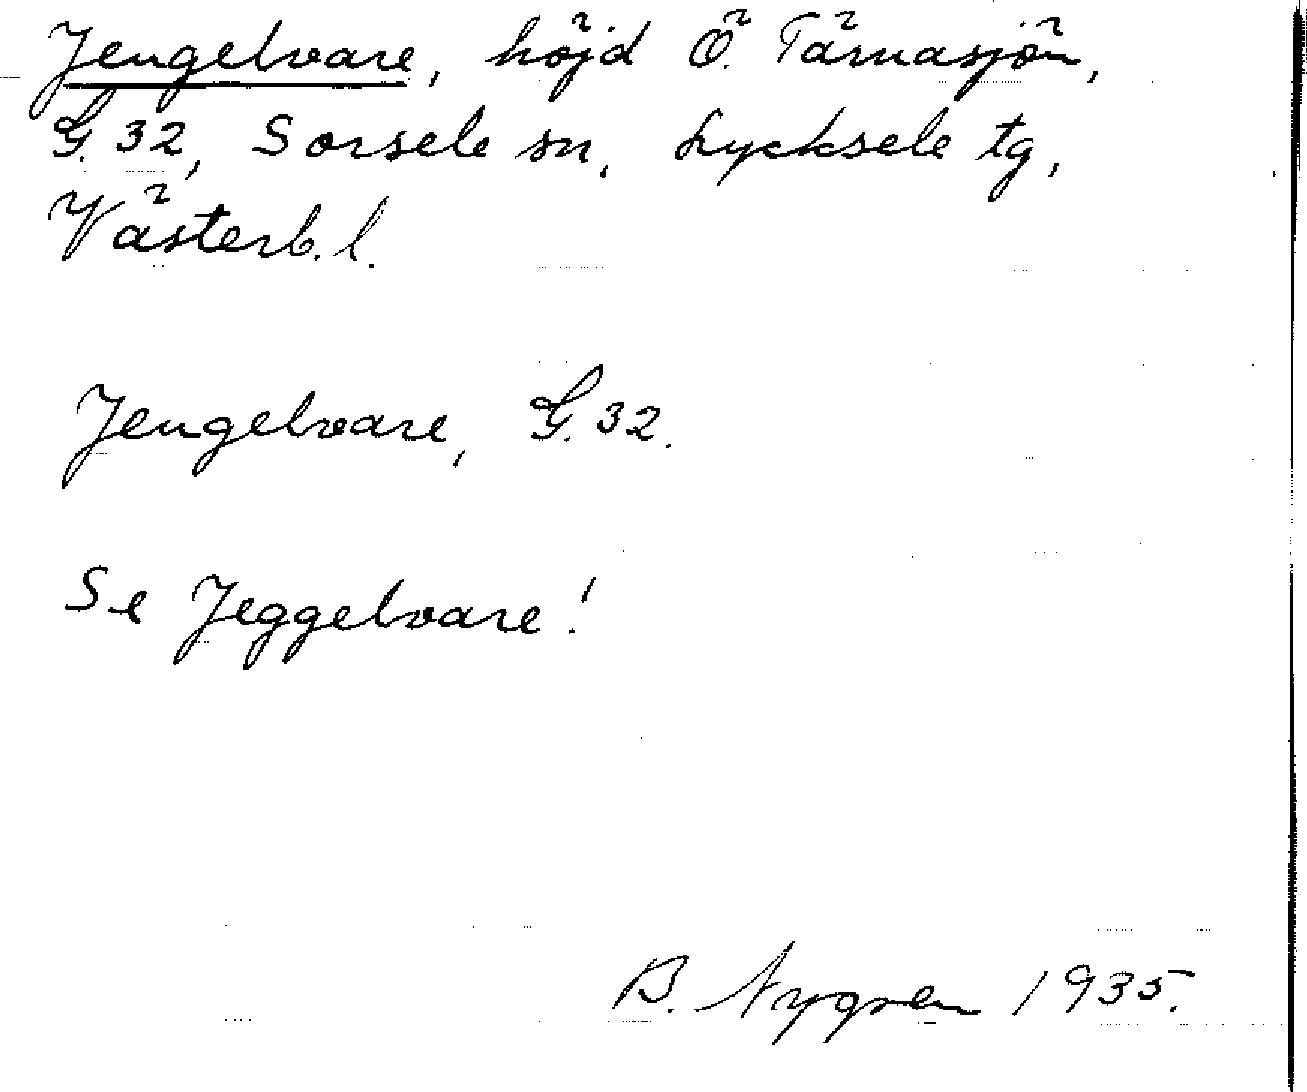 Jengelvare, höjd Ö. Tärnasjön,
G. 32, Sorsele sn, Lycksele tg,
Västerb. l.
Jengelvare, G. 32.
Se Jeggelvare!
B. Nygren 1935.